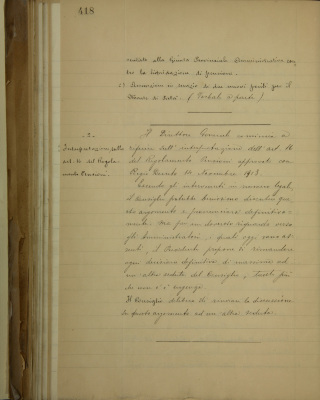 418
alla Giunta Provinciale Amministrativa
la liquidazione di pensione.
in di due nuovi per il
(Verbale a parte)
- 2 -
Interpretazione sulla
art. 16 del Regola-
mento Pensioni
Il Direttore Generale comincia a
riferire dell'interpretazione dell'art. 16
del Regolamento Pensioni approvato con
Regio Decreto Novembre 1913.
Essendo gli intervenuti in numero legale,
il Consiglio potrebbe benissimo discutere que-
sto argomento e pronunciarsi definitiva-
mente. Ma per un doveroso riguardo verso
gli Amministratori i quali oggi sono as-
senti, il Presidente propone di rimandare
ogni decisione definitiva di massima ad
un'altra seduta del Consiglio, tanto più
che non v'è urgenza.
Il Consiglio delibera di rinviare la discussione
di questo argomento ad una altra seduta.